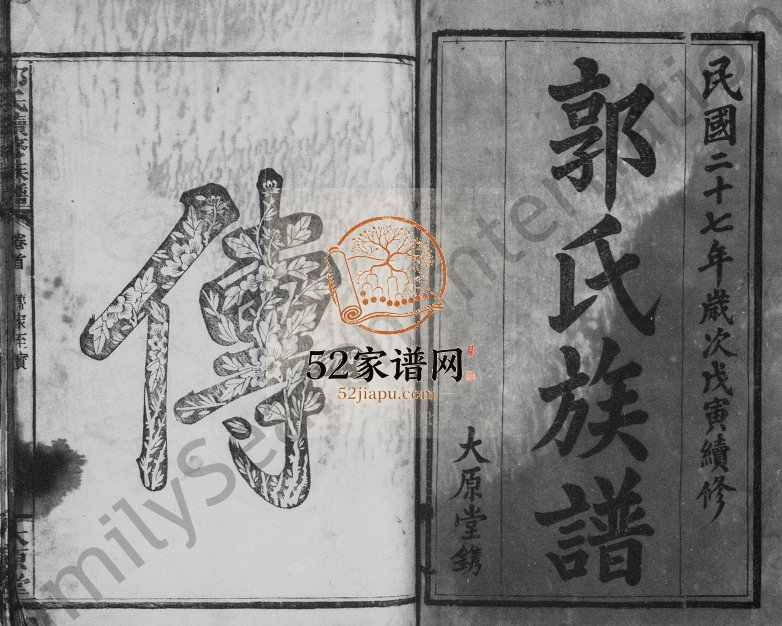 民國二十七年歲次戊寅續修
郭氏族譜
大原堂鐫
傳
郭氏續修族譜
卷首
傳家至寶
大原堂
52家谱网
52jiapu.com